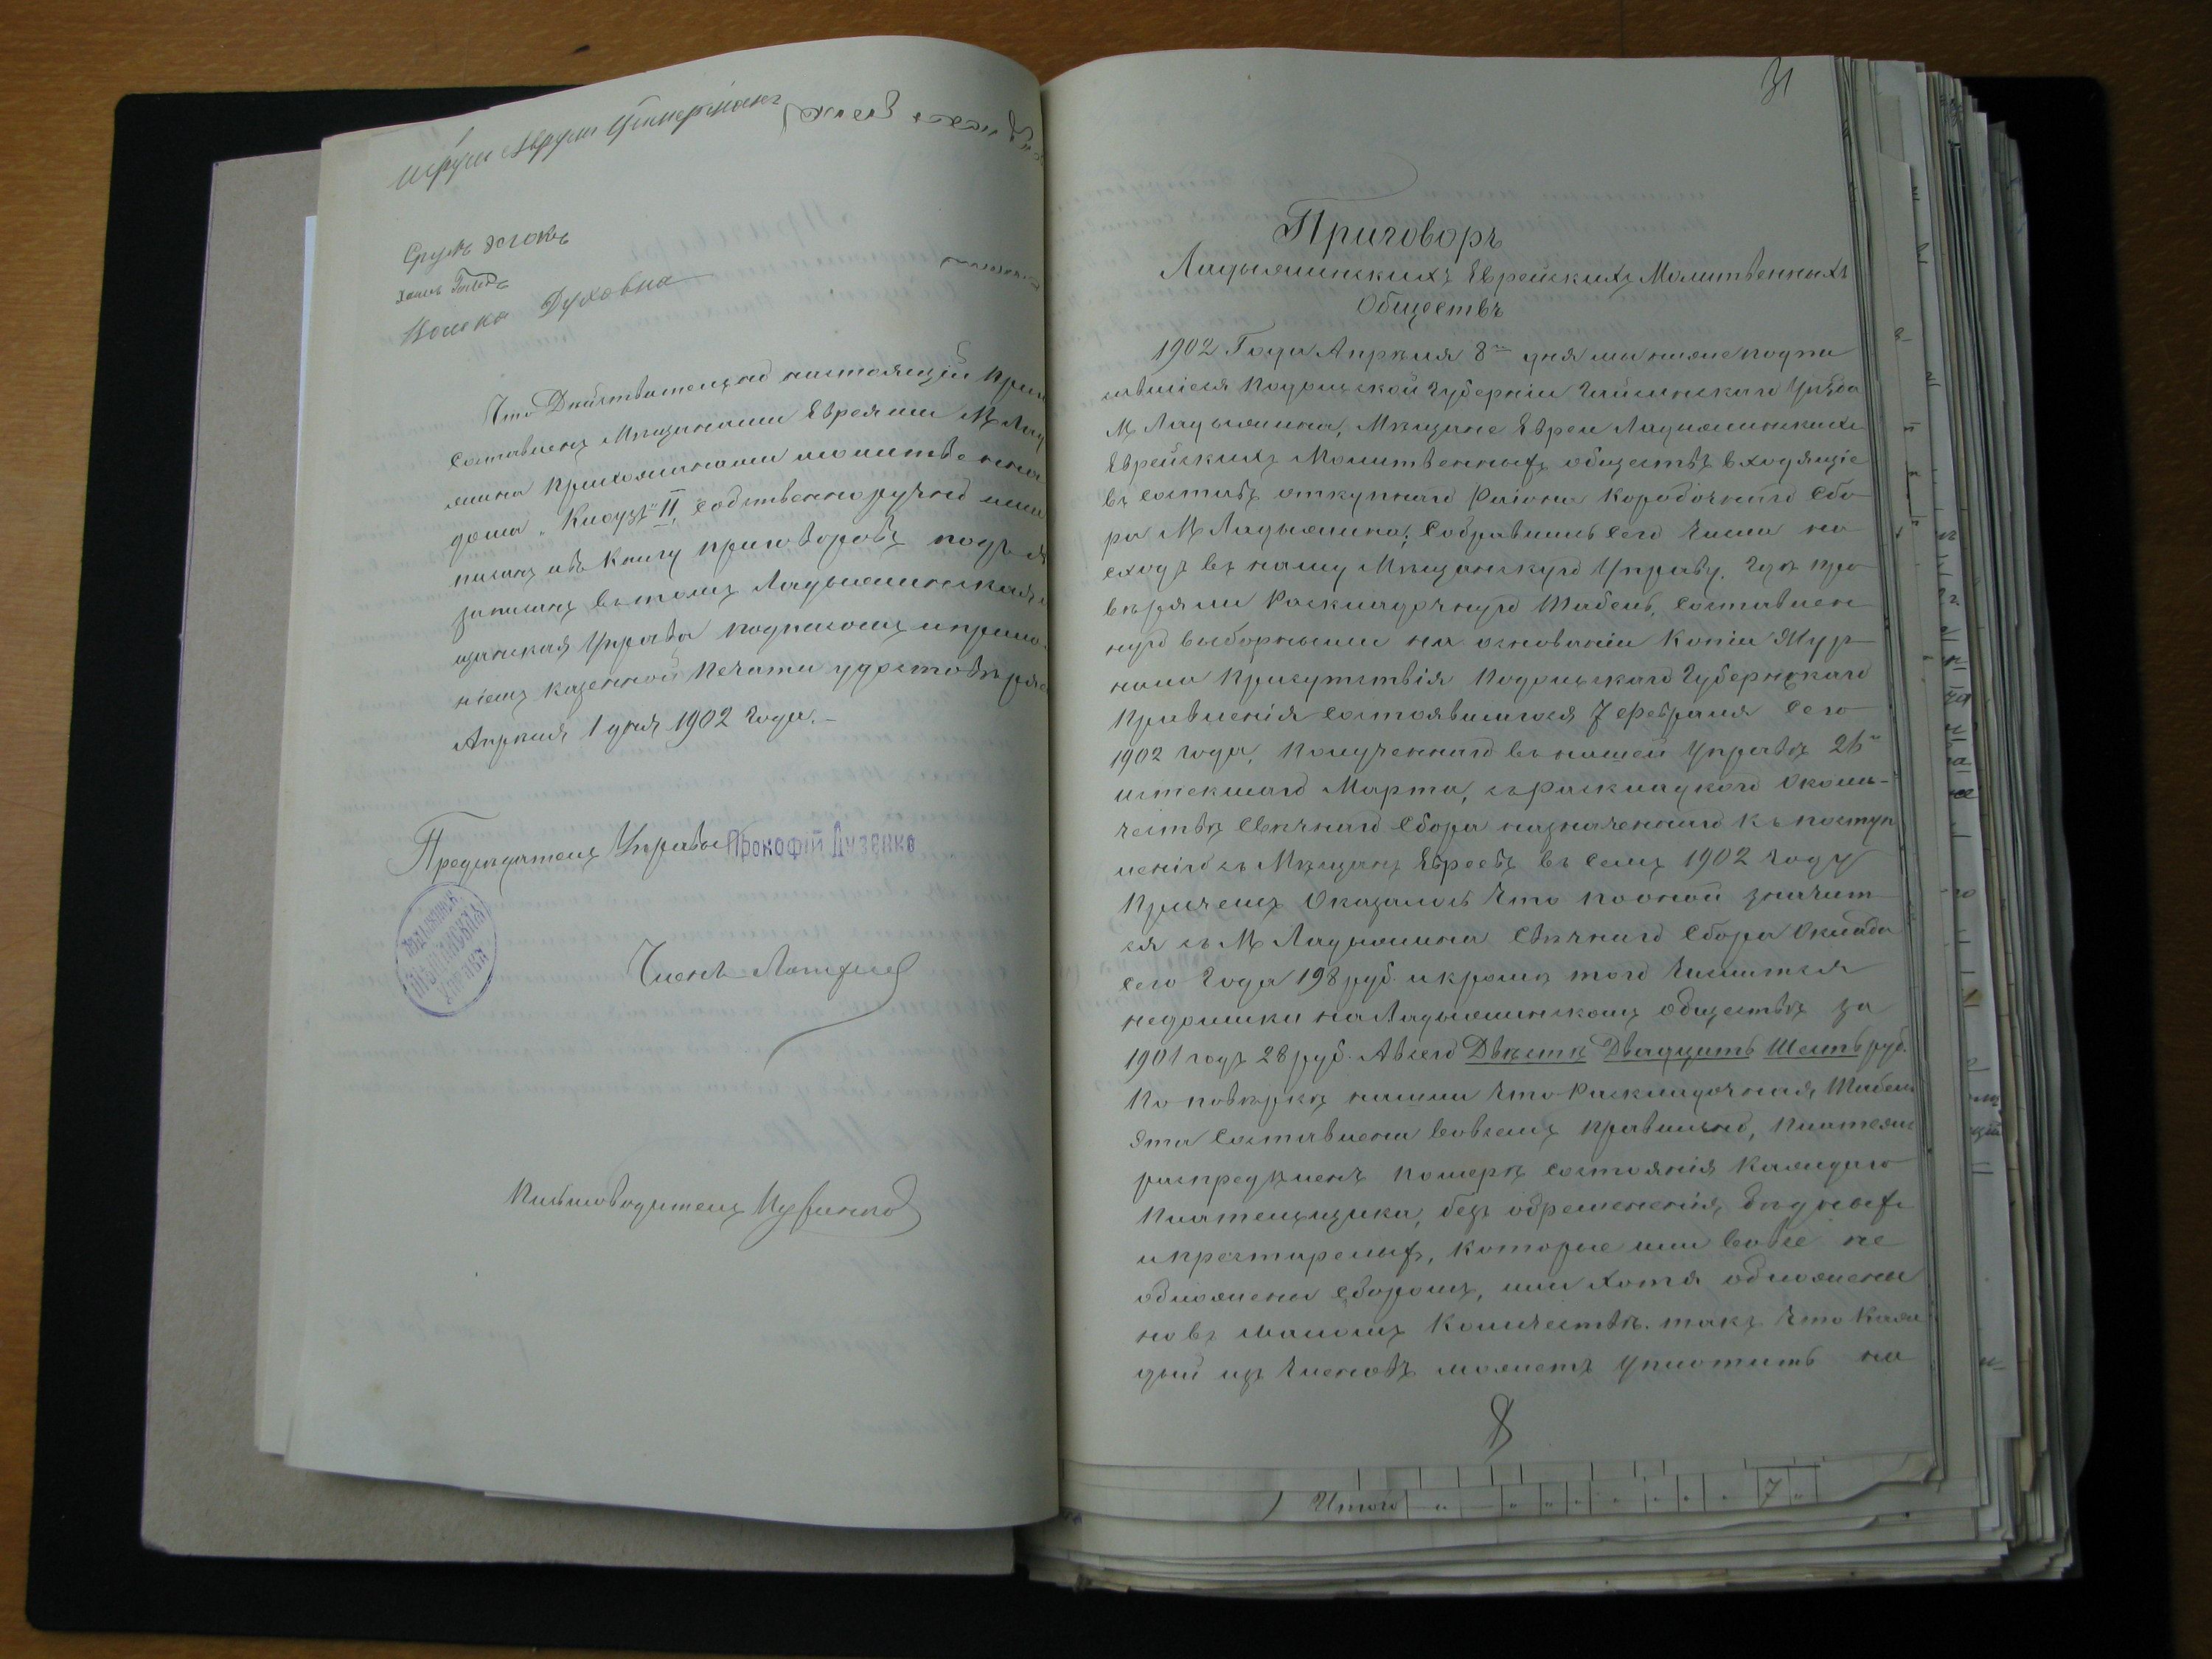 Срулъ Аврумъ Цимерманъ
Срулъ Зголкъ
Иоська Духовна
Что Дѣйствительно настоящій При
составленъ Мѣщанами Евреями М. Лад
жина прихожанами молитвенна
дома „Клоузъ" II, собственноручно ими
писанъ и въ Книгу приговоровъ подъ №
записанъ въ томъ Ладыжинская
щанская Управа подписомъ и прило
ніемъ казенной Печати удостовѣряе
Апрѣля 1 дня 1902 года.
Предсѣдатель Управы Прокофій Дузенко
ЛАДЫЖИНСК. МѢЩАНСКАЯ УПРАВА
Членъ
Письмоводитель
31
Приговоръ
Ладыжинскихъ Еврейскихъ Молитвенныхъ
Обществъ
1902 Года Апрѣля 8го дня мы нижеподпи
савшіеся Подольской Губерніи Гайсинскаго Уѣзда
М. Ладыжина, Мѣщане Евреи Ладыжинскихъ
Еврейскихъ Молитвенныхъ обществъ входящіе
въ составъ откупнаго Раіона Коробочнаго Сбо
ра М. Ладыжина, Собравшись сего числа на
сходъ въ нашу Мѣщанскую Управу, гдѣ про
вѣряли Раскладочную Табель, составлен
ную выборными на основаніи Копіи Жур
нала Присутствія Подольскаго Губернскаго
Правленія состоявшагося 7 Февраля сего
1902 года, Полученнаго въ нашей Управѣ 26го
истекшаго Марта, съ раскладкою о колы-
чествѣ Свѣчнаго Сбора назначеннаго къ поступ
ленію съ Мѣщанъ Евреевъ въ семъ 1902 году
Причемъ Оказалось что по оной значит
ся съ М. Ладыжина Свѣчнаго Сбора Оклада
сего Года 198 руб. и кромѣ того числится
недоимки на Ладыжинскомъ обществѣ за
1901 годъ 28 руб. А всего Двѣстѣ Двадцать Шесть руб.
По повѣркѣ нашли что Раскладочная Табель
эта Составлена вовсемъ правильно, Платежъ
распредѣленъ помѣрѣ состоянія каждаго
Плательщика, безъ обремененія бѣдныхъ
и престарелыхъ, которые или вовсе не
обложены сборомъ, или хотя обложены
но въ маломъ Количествѣ. такъ что каж
дый изъ членовъ можетъ уплотить на
8
Итого
7